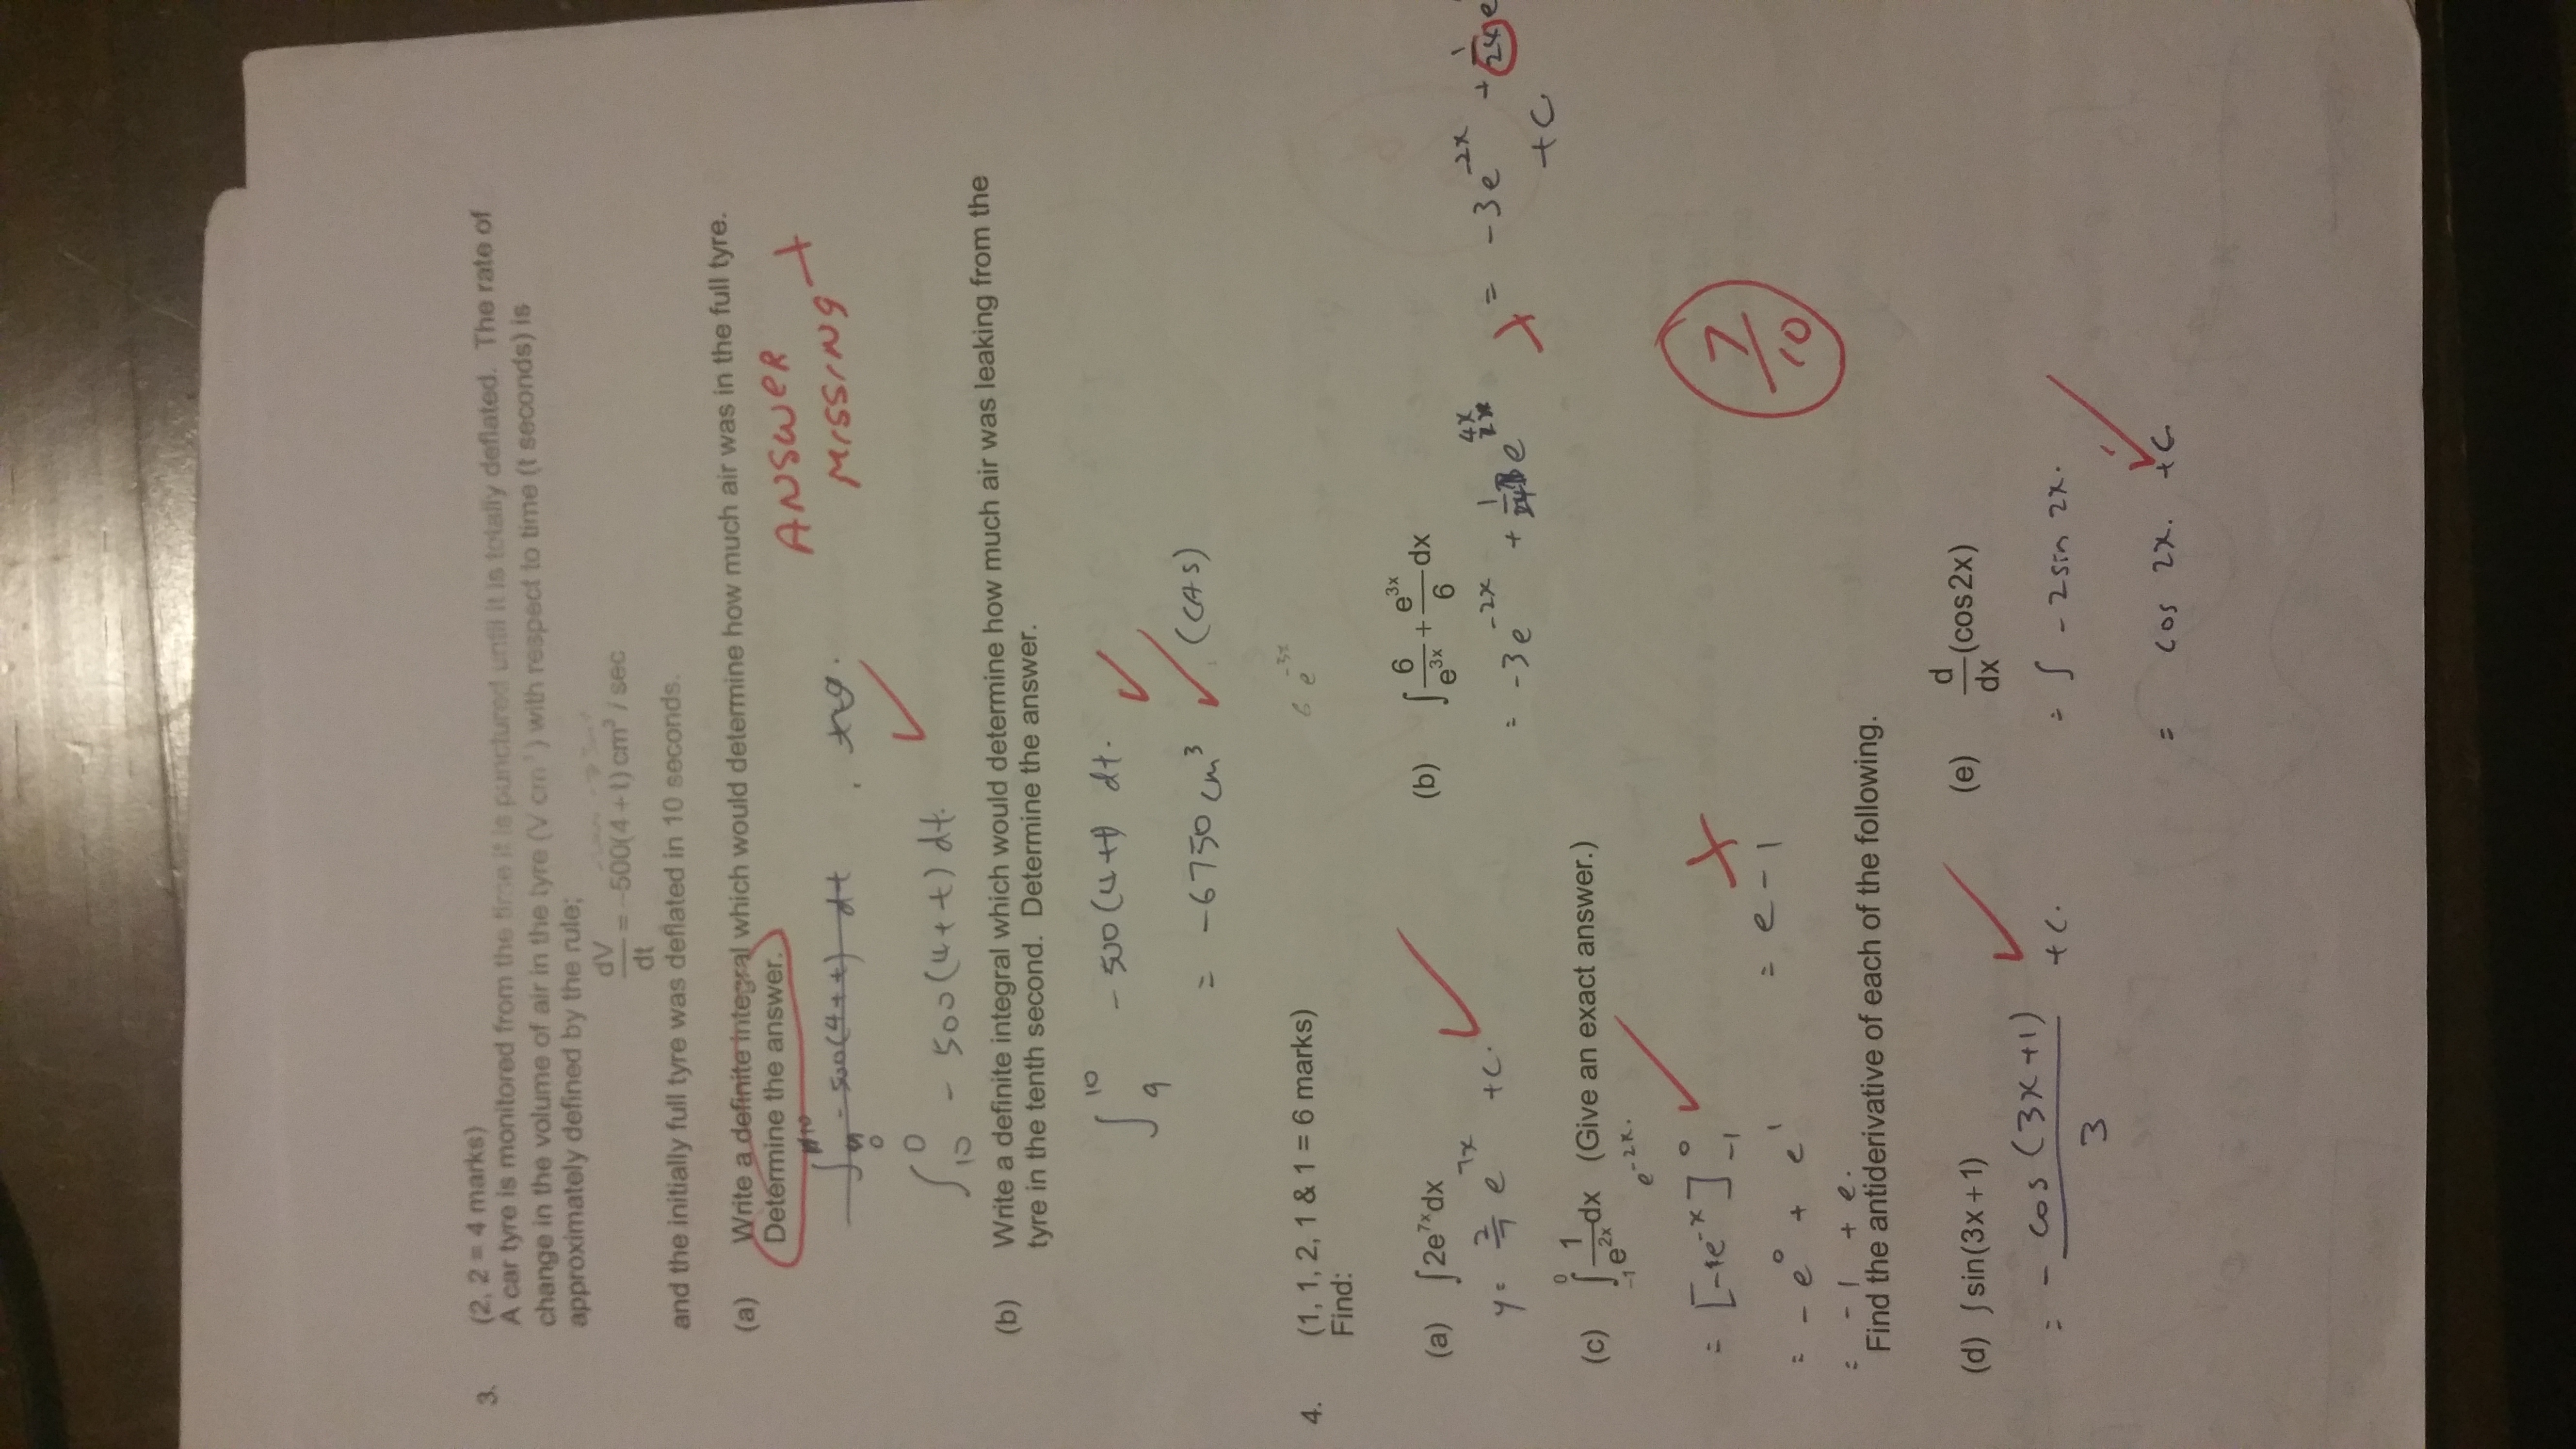 3. (2, 2 = 4 marks)
A car tyre is monitored from the time it is punctured until it is totally deflated. The rate of
change in the volume of air in the tyre (V cm³) with respect to time (t seconds) is
approximately defined by the rule;
dV/dt = -500(4+t) cm³ / sec
and the initially full tyre was deflated in 10 seconds.
(a) Write a definite integral which would determine how much air was in the full tyre.
Determine the answer.
ANSWER
MISSING
-500(4+t) dt
∫₁₀⁰ - 500(4+t) dt.
(b) Write a definite integral which would determine how much air was leaking from the
tyre in the tenth second. Determine the answer.
∫₉¹⁰ - 500(4+t) dt.
= -6750 cm³ (CAS)
4. (1, 1, 2, 1 & 1 = 6 marks)
Find:
6 e^-3x
(a) ∫2e^7x dx (b) ∫6/e^3x + e^3x/6 dx
y = 2/7 e^7x +c. = -3e^-2x + 1/24 e^4x = -3e^-2x + 1/24 e
+c
(c) ∫₋₁⁰ 1/e^2x dx (Give an exact answer.)
e^-2x.
= [-1e^-x]⁰₋₁
= -e⁰ + e¹ = e - 1
= -1 + e.
7/10
Find the antiderivative of each of the following.
(d) ∫sin(3x+1) (e) d/dx (cos2x)
= - cos (3x+1)/3 +c. = ∫ -2sin 2x.
= cos 2x. +c